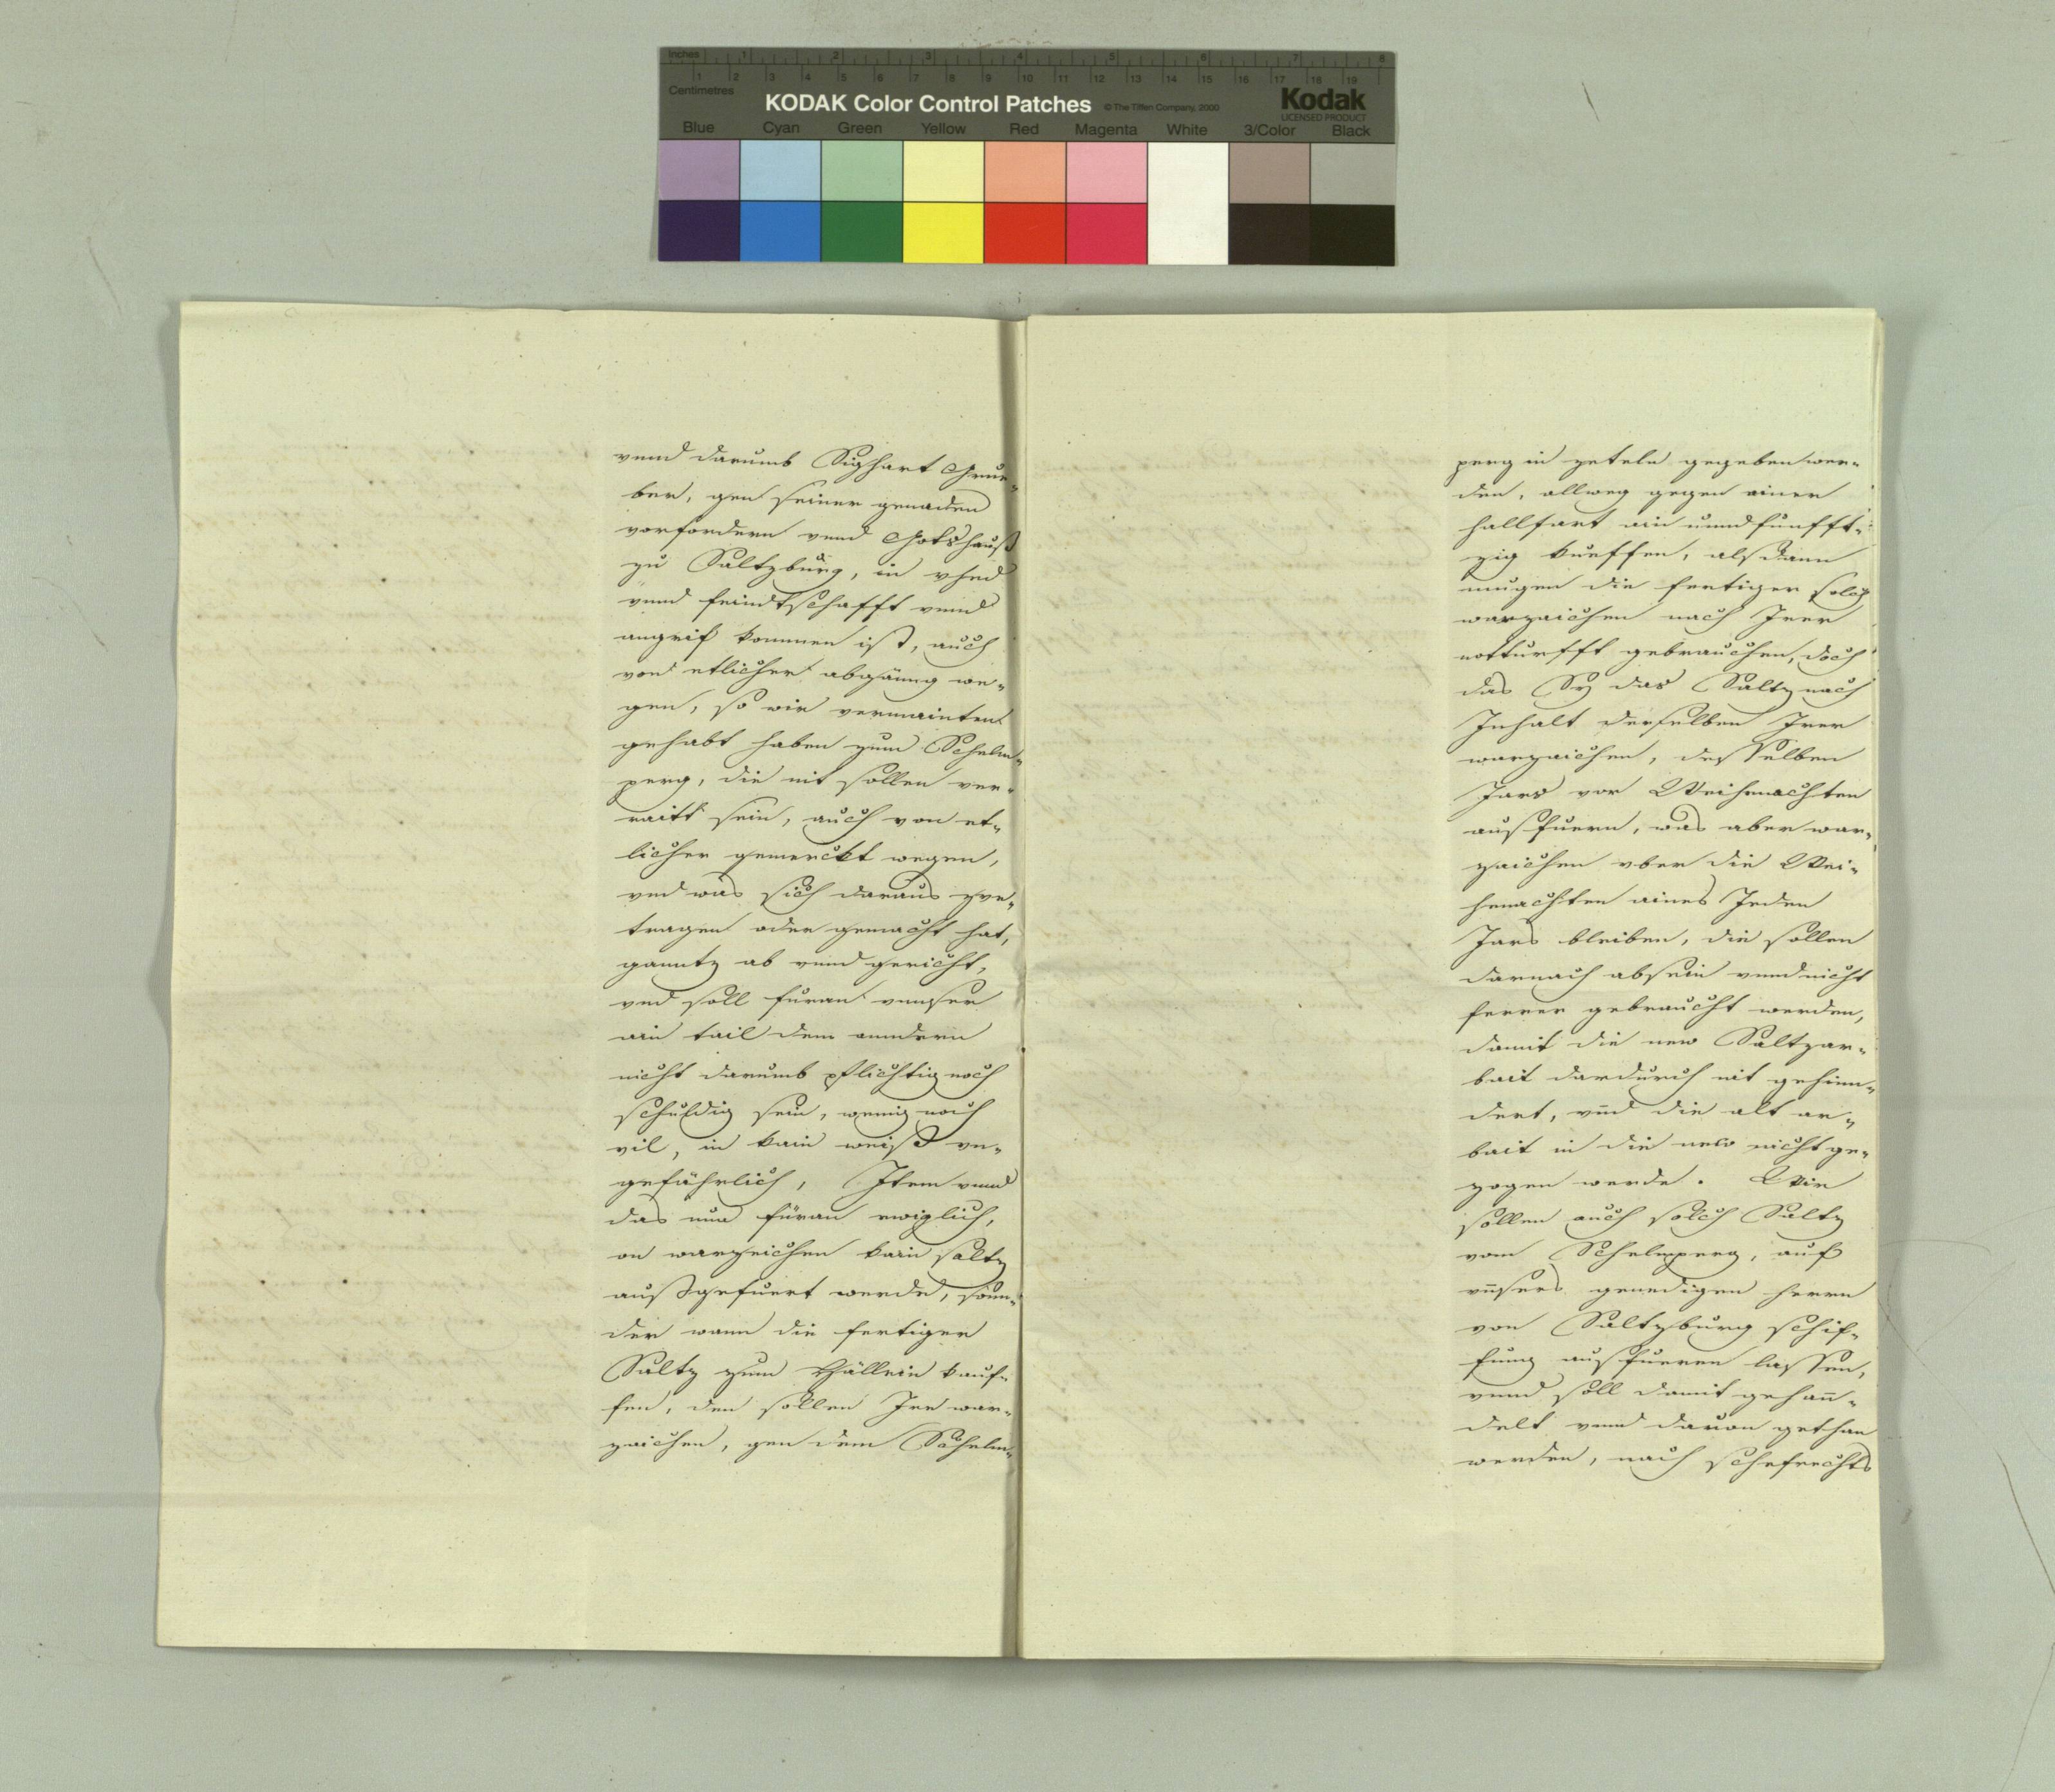 Inches 1 2 3 4 5 6 7 8
1 2 3 4 5 6 7 8 9 10 11 12 13 14 15 16 17 18 19
Centimetres
KODAK Color Control Patches © The Tiffen Company, 2000 Kodak
LICENSED PRODUCT
Blue Cyan Green Yellow Red Magenta White 3/Color Black
vnnd darumb Sighart Grue-
ber, gen seiner genaden
vorfordern vnnd Gotshauß
zu Saltzburg, in vhed
vnnd feindtschafft vnnd
angrif kommen ist, auch
von etlicher abgänng we-
gen, so wir vermainten
gehabt haben zum Schelm-
perg, die nit sollen ver-
raitt sein, auch von et-
licher gemerckt wegen,
vnd was sich daraus zue-
tragen oder gemacht hat,
ganntz ab vnnd gericht,
vnd soll furan vnnser
ain tail dem anndern
nicht darumb pflichtig noch
schuldig sein, wenig noch
vil, in kain weiß vn-
gefährlich, Item vnnd
das nun füran ewiglich,
on warzeichen kain saltz
außgefuert werde, sonn-
der wann die fertiger
Saltz zum Hällein kauf-
fen, den sollen Ire war-
zaichen, gen dem Schelm-
perg in zeteln gegeben wer-
den, allweg gegen einer
hallfart ain unnd funfft-
zig kueffen, alsdann
mugen die fertiger solch
warzaichen nach Irer
notturfft gebrauchen, doch
das Sy das Saltz nach
Inhalt derselben Irer
warzaichen, desselben
Jars vor Weihnachten
ausfuern, was aber war-
zaichen vber die Wei-
henachten aines Jeden
Jars bleiben, die sollen
darnach absein vnnd nicht
ferrer gebraucht werden,
damit die new Saltzar-
bait dardurch nit gehinn-
dert, vnd die alt ar-
bait in die new nicht ge-
zogen werde. Wir
sollen auch solch Saltz
vom Schelmperg, auf
vnsers genedigen herrn
von Saltzburg schif-
fung ausfueren lassen,
vnnd soll damit gehan-
delt vnnd dauon gethan
werden, nach schefrechts